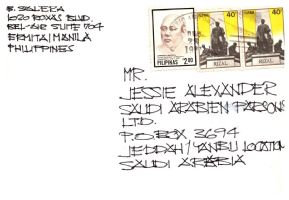 B. SALERA
1020 ROXAS BLVD.
BEL-AIR SUITE 704
ERMITA/MANILA
PHILIPPINES
PILIPINAS
2.80
40
RIZAL
40
RIZAL
MR.
JESSIE ALEXANDER
SAUDI ARABIEN PARSONS
LTD.
P.O BOX 3694
JEDDAH/YANBU LOCATION
SAUDI ARABIA